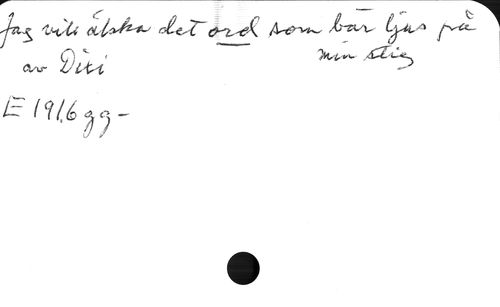 Jag vill älska det ord som bär ljus på
min stig
av Dixi
E 1916 gg -